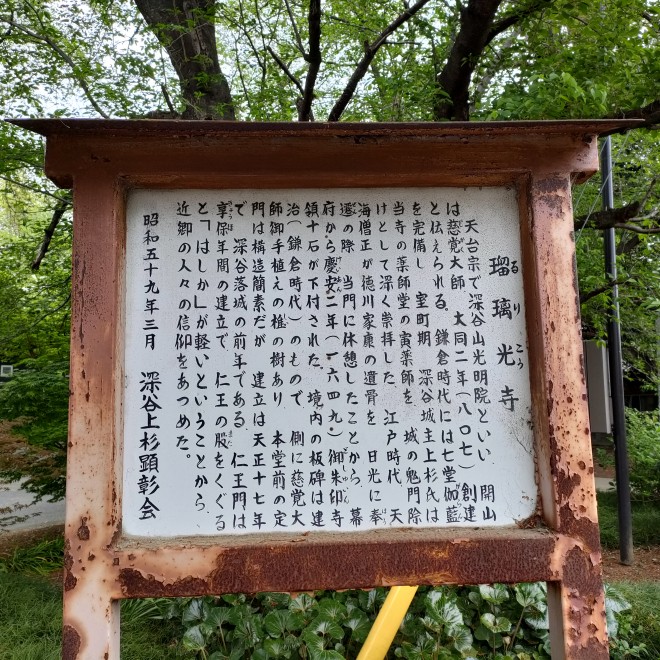 瑠璃光寺
るりこう
天台宗で深谷山光明院といい 開山
は慈覚大師 大同二年(八〇七)創建
と伝えられる。鎌倉時代には七堂伽藍
を完備し 室町期 深谷城主上杉氏は
当寺の薬師堂の寅薬師を 城の鬼門除
けとして深く崇拝した。江戸時代 天
海僧正が徳川家康の遺骨を 日光に奉
遷の際 当門に休憩したことから、幕
府から慶安二年(一六四九)御朱印寺
領十石が下付された。境内の板碑は建
治(鎌倉時代)のもので 側に慈覚大
師御手植えの槍の樹あり 本堂前の定
門は構造簡素だが 建立は天正十七年
で 深谷落城の前年である 仁王門は
享保年間の建立で、仁王の股をくぐる
と「はしか」が軽いということから、
近郷の人々の信仰をあつめた。
昭和五十九年三月 深谷上杉顕彰会